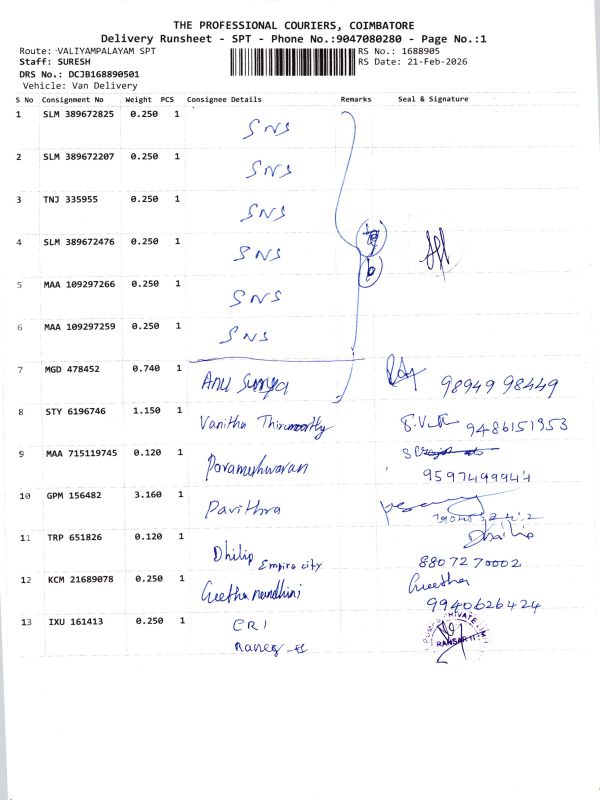 THE PROFESSIONAL COURIERS, COIMBATORE
Delivery Runsheet - SPT - Phone No.:9047080280 - Page No.:1
Route: VALIYAMPALAYAM SPT
RS No.: 1688905
Staff: SURESH
RS Date: 21-Feb-2026
DRS No.: DCJB168890501
Vehicle: Van Delivery
S No Consignment No Weight PCS Consignee Details Remarks Seal & Signature
1 SLM 389672825 0.250 1 SNS
2 SLM 389672207 0.250 1 SNS
3 TNJ 335955 0.250 1 SNS
4 SLM 389672476 0.250 1 SNS
5 MAA 109297266 0.250 1 SNS
6 MAA 109297259 0.250 1 SNS
7 MGD 478452 0.740 1 Anu 98949 98449
8 STY 6196746 1.150 1 Vanitha Thirumoorthy 9486151353
9 MAA 715119745 0.120 1 Parameshwaran
9597499944
10 GPM 156482 3.160 1 Pavithra
11 TRP 651826 0.120 1 Dhilip
Dhilip Empire city
8807270002
12 KCM 21689078 0.250 1 Geethanandhini Geetha
9940626424
13 IXU 161413 0.250 1 CRI